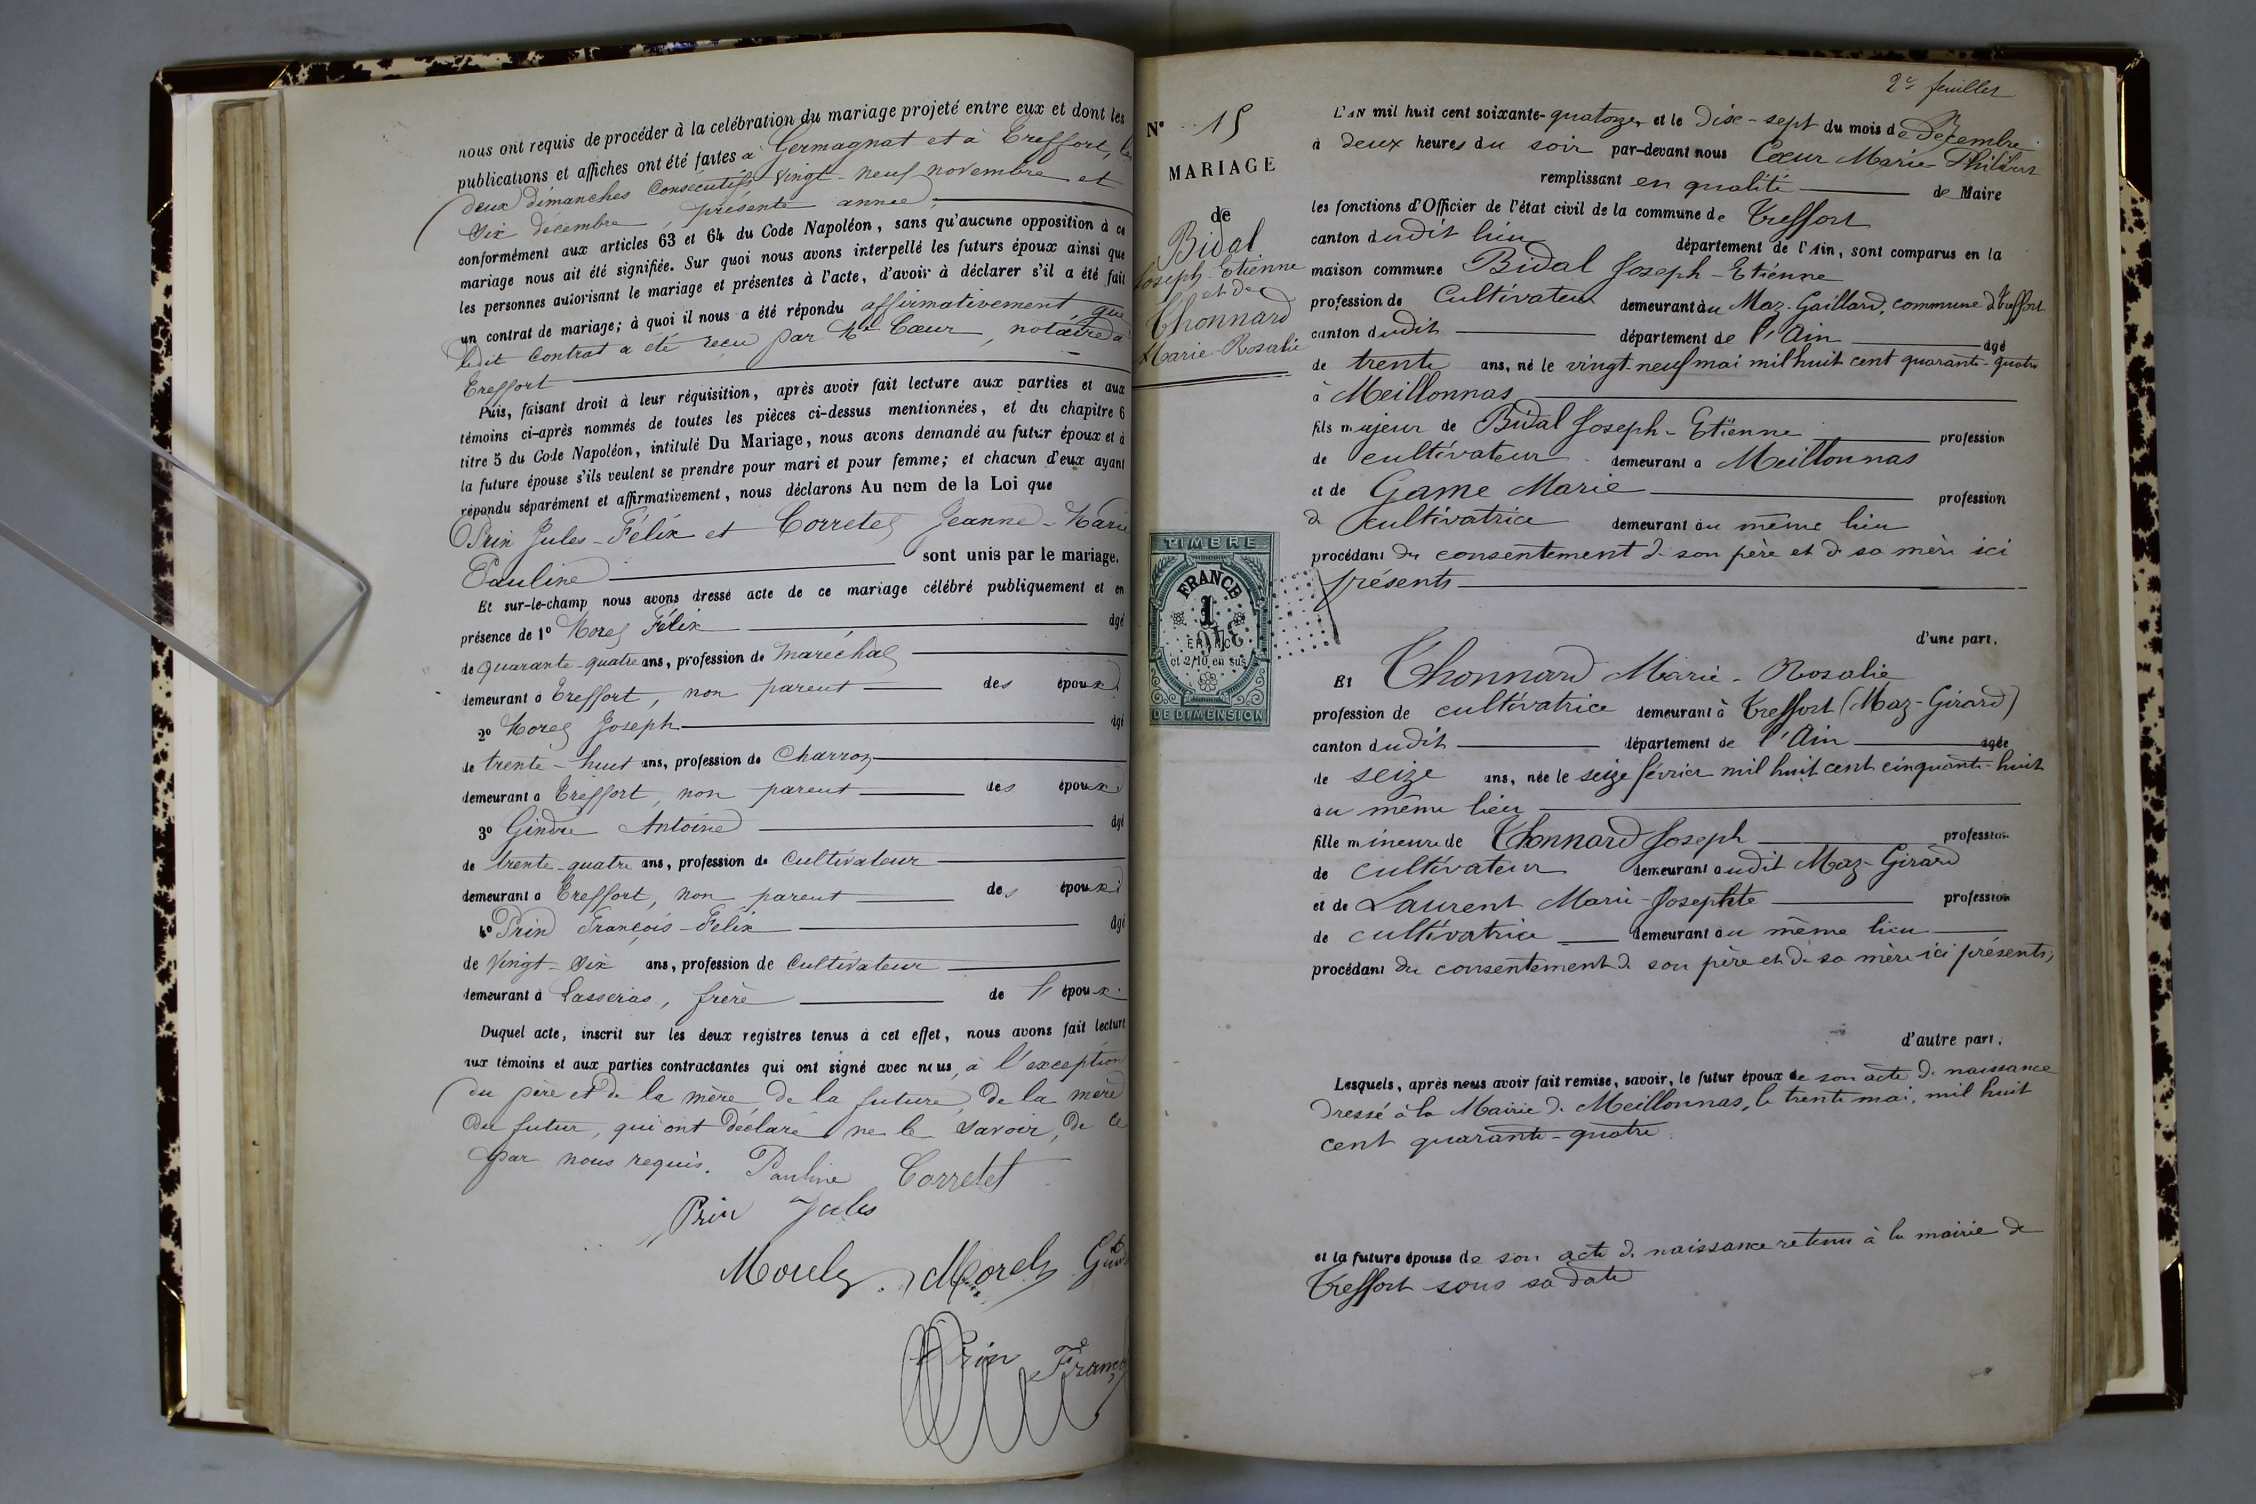 nous ont requis de procéder à la celébration du mariage projeté entre eux et dont les
publications et affiches ont été faites à Germagnat et à Treffort, les
deux dimanches consécutifs vingt-neuf novembre et
six décembre, présente année,
conformément aux articles 63 et 64 du Code Napoléon, sans qu'aucune opposition à ce
mariage nous ait été signifiée. Sur quoi nous avons interpellé les futurs époux ainsi que
les personnes autorisant le mariage et présentes à l'acte, d'avoir à déclarer s'il a été fait
un contrat de mariage; à quoi il nous a été répondu affirmativement que
ledit contrat a été reçu par Me Cœur, notaire à
Treffort
Puis, faisant droit à leur réquisition, après avoir fait lecture aux parties et aux
témoins ci-après nommés de toutes les pièces ci-dessus mentionnées, et du chapitre 6
titre 5 du Code Napoléon, intitulé Du Mariage, nous avons demandé au futur époux et à
la future épouse s'ils veulent se prendre pour mari et pour femme; et chacun d'eux ayant
répondu séparément et affirmativement, nous déclarons Au nom de la Loi que
Prin Jules-Félix et Corretel Jeanne-Marie
Pauline sont unis par le mariage.
Et sur-le-champ nous avons dressé acte de ce mariage célébré publiquement et en
présence de 1º Morel Félix âgé
de quarante-quatre ans, profession de maréchal
demeurant à Treffort, non parent des époux
2º Morel Joseph âgé
de trente-huit ans, profession de charron
demeurant à Treffort, non parent des époux
3º Gindre Antoine âgé
de trente-quatre ans, profession de cultivateur
demeurant à Treffort, non parent des époux
4º Prin François-Félix âgé
de vingt-six ans, profession de cultivateur
demeurant à Lasseras, frère de l'époux.
Duquel acte, inscrit sur les deux registres tenus à cet effet, nous avons fait lecture
aux témoins et aux parties contractantes qui ont signé avec nous, à l'exception
du père et de la mère de la future, de la mère
du futur, qui ont déclaré ne le savoir, de ce
par nous requis. Pauline Corretel
Prin Jules
Morel Morel
Prin
2e feuillet
Nº 15
MARIAGE
de
Bidal
Joseph-Etienne
et de
Thonnard
Marie-Rosalie
TIMBRE
FRANCE
1
FRANC
et 2/10 en sus
DE DIMENSION
L'AN mil huit cent soixante-quatorze et le dix-sept du mois de Décembre
à deux heures du soir par-devant nous Cœur Marie-Philibert
remplissant en qualité de Maire
les fonctions d'Officier de l'état civil de la commune de Treffort
canton dudit lieu département de l'Ain, sont comparus en la
maison commune Bidal Joseph-Etienne
profession de cultivateur demeurant au Maz-Gaillard, commune de Treffort
canton dudit département de l'Ain âgé
de trente ans, né le vingt-neuf mai mil huit cent quarante-quatre
à Meillonnas
fils majeur de Bidal Joseph-Etienne profession
de cultivateur demeurant à Meillonnas
et de Game Marie profession
de cultivatrice demeurant au même lieu
procédant du consentement de son père et de sa mère ici
présents
d'une part.
Et Thonnard Marie-Rosalie
profession de cultivatrice demeurant à Treffort (Maz-Girard)
canton dudit département de l'Ain âgée
de seize ans, née le seize février mil huit cent cinquante-huit
au même lieu
fille mineure de Thonnard Joseph profession
de cultivateur demeurant audit Maz-Girard
et de Laurent Marie-Josephte profession
de cultivatrice demeurant au même lieu
procédant du consentement de son père et de sa mère ici présents,
d'autre part.
Lesquels, après nous avoir fait remise, savoir, le futur époux de son acte de naissance
dressé à la Mairie de Meillonnas, le trente mai, mil huit
cent quarante-quatre.
et la future épouse de son acte de naissance retenu à la mairie de
Treffort sous sa date